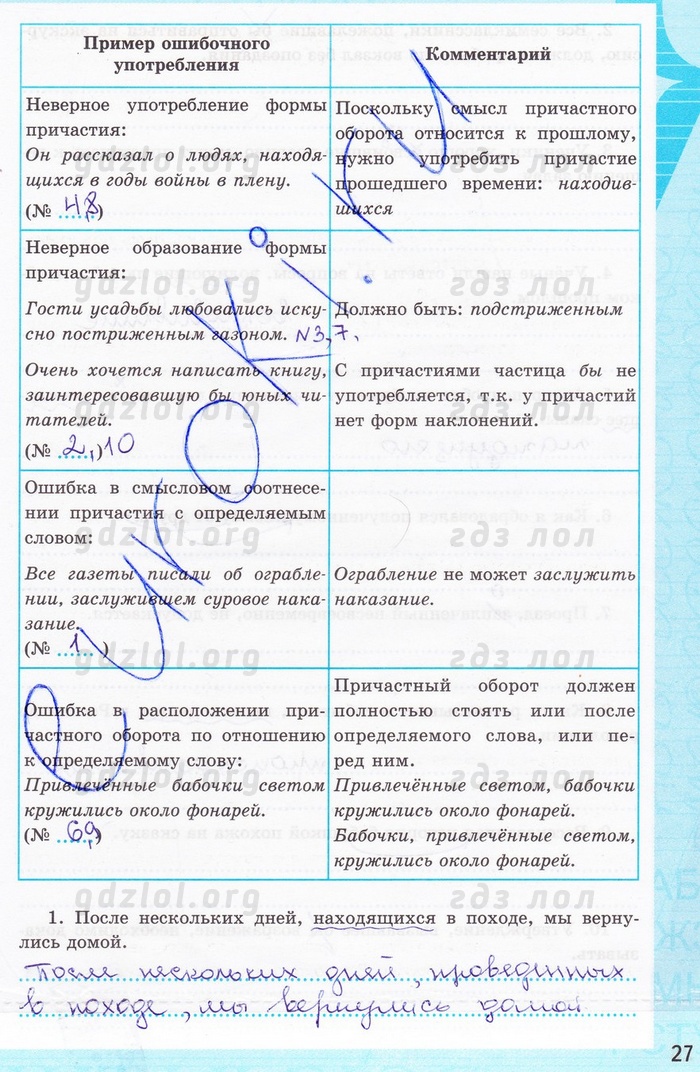 Пример ошибочного
употребления
Комментарий
Неверное употребление формы
причастия:
Он рассказал о людях, находя-
щихся в годы войны в плену.
(№ 4,8)
Поскольку смысл причастного
оборота относится к прошлому,
нужно употребить причастие
прошедшего времени: находив-
шихся
Неверное образование формы
причастия:
Гости усадьбы любовались иску-
сно постриженным газоном. №3,7.
Должно быть: подстриженным
Очень хочется написать книгу,
заинтересовавшую бы юных чи-
тателей.
(№ 2,)10
С причастиями частица бы не
употребляется, т.к. у причастий
нет форм наклонений.
Ошибка в смысловом соотнесе-
нии причастия с определяемым
словом:
Все газеты писали об ограбле-
нии, заслужившем суровое нака-
зание.
(№ 1)
Ограбление не может заслужить
наказание.
Ошибка в расположении при-
частного оборота по отношению
к определяемому слову:
Привлечённые бабочки светом
кружились около фонарей.
(№ 6,9)
Причастный оборот должен
полностью стоять или после
определяемого слова, или пе-
ред ним.
Привлечённые светом, бабочки
кружились около фонарей.
Бабочки, привлечённые светом,
кружились около фонарей.
1. После нескольких дней, находящихся в походе, мы верну-
лись домой.
После нескольких дней, проведенных
в походе, мы вернулись домой
27
gdzlol.org
гдз лол
gdzlol.org
гдз лол
gdzlol.org
гдз лол
gdzlol.org
гдз лол
gdzlol.org
гдз лол
gdzlol.org
гдз лол
gdzlol.org
гдз лол